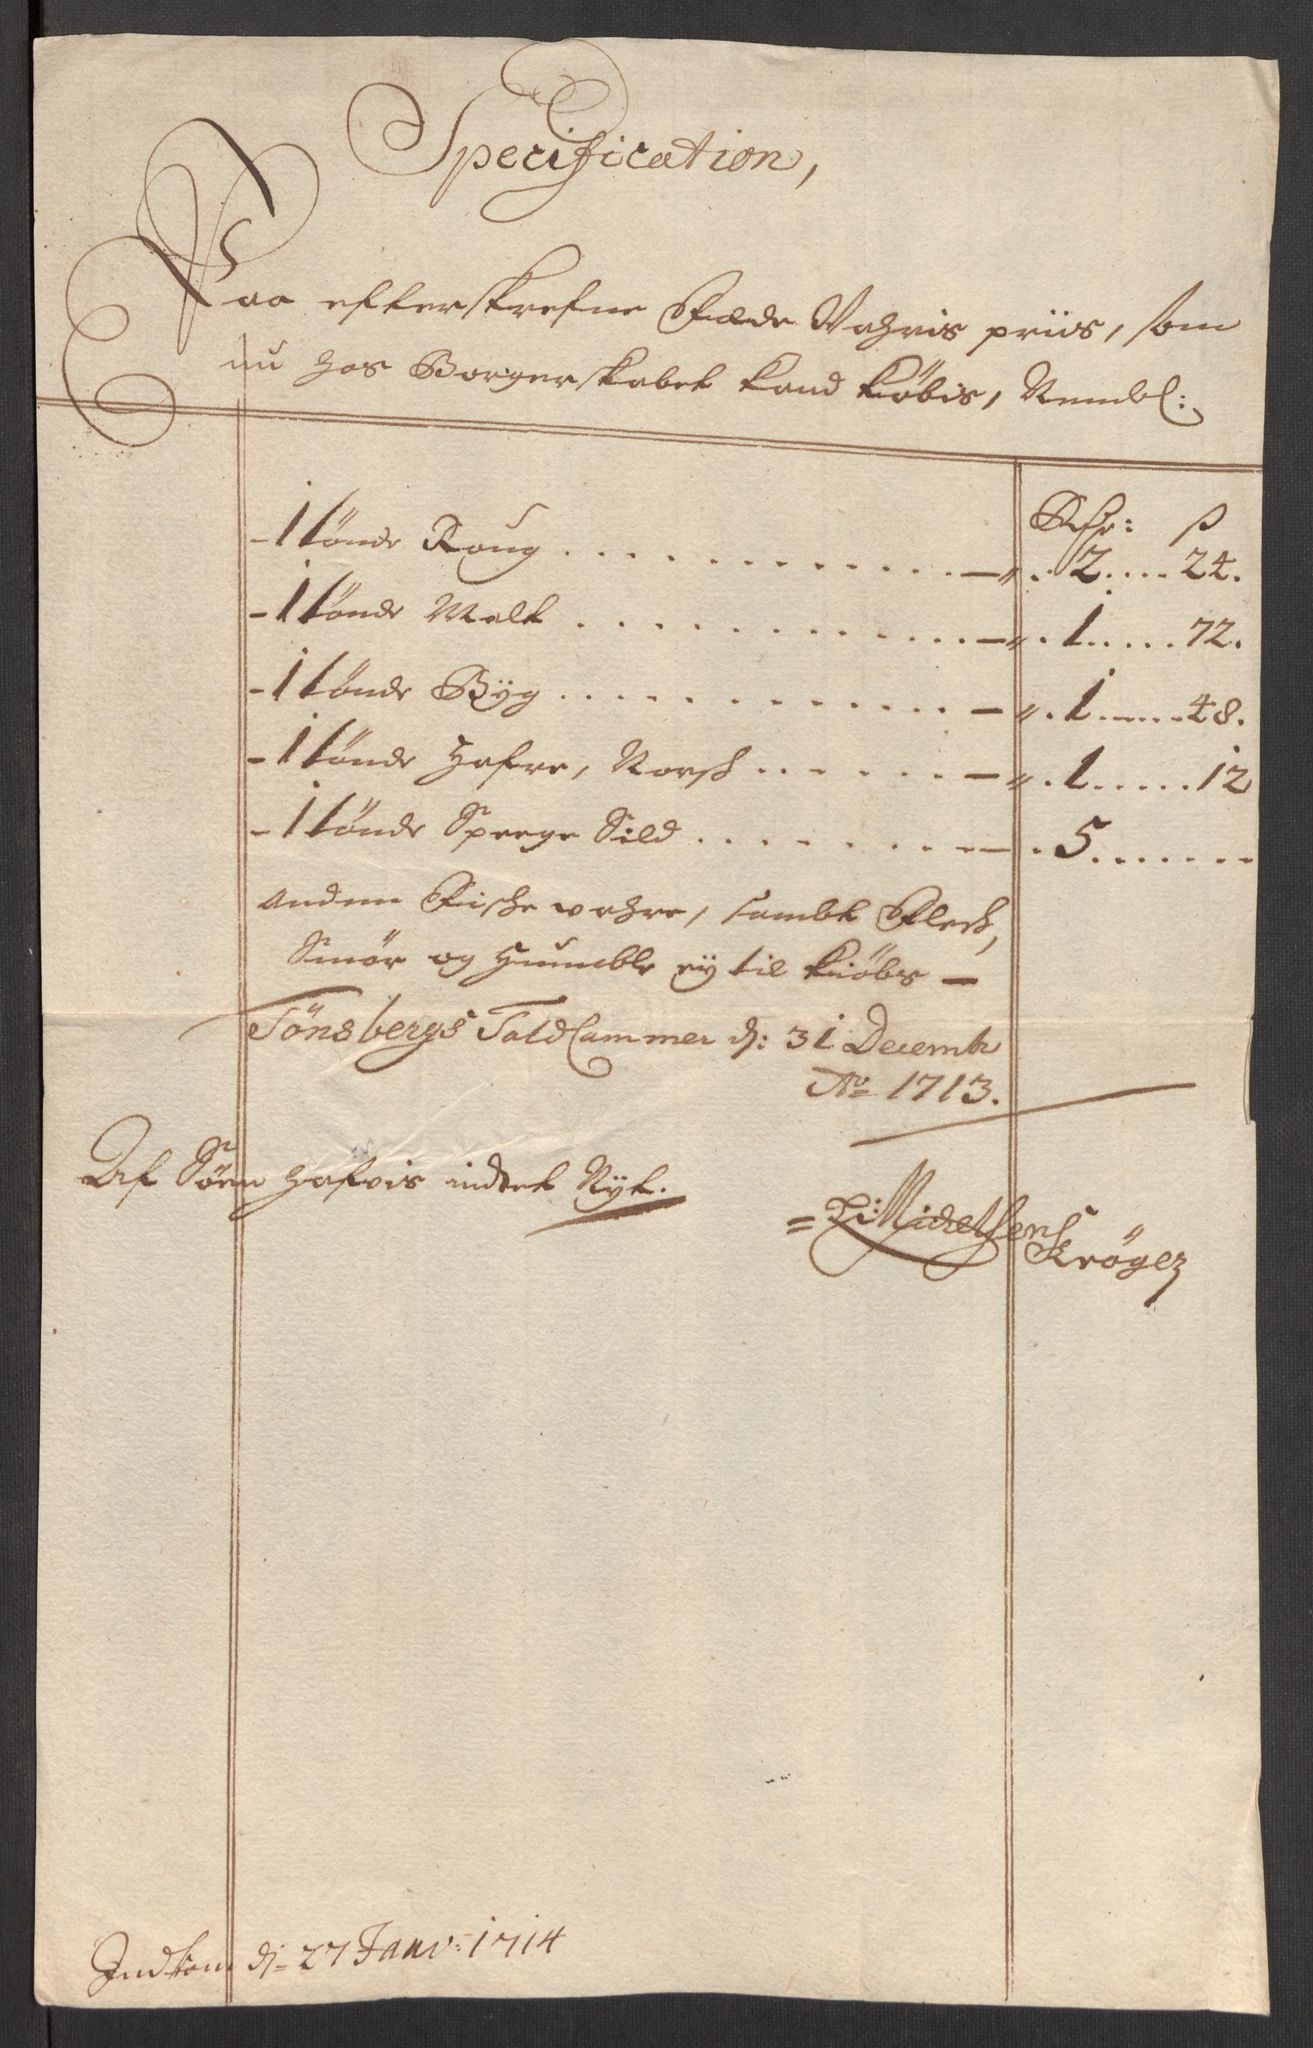 Specification,
Paa efterskrefne Fæde Vahris priis, som
nu hos Borgerskabet kand kiöbis, Nembl:
Rdr: ß
- 1 tönde Roug . . . . . . . . . . . . — „ . 2 . . . . 24.
- 1 tönde Malt . . . . . . . . . . . . — „ . 1 . . . . . 72.
- 1 tönde Bÿg . . . . . . . . . . . . — „ . 1 . . . . . 48.
- 1 tönde Hafre, Norsk . . . . . . — „ . 1 . . . . . 12
- 1 tönde Speege Sild . . . . . . . . — . 5 . . . . . . .
anden Fiske wahre, sambt Flesk,
Smör og Humble eÿ til kiöbs —
Tönsbergs Told Cammer d: 31 Decembr
Ao 1713.
Af Söen hafvis indtet Nÿt.
Michelsen
Kröger
Indkom d: 27 Janv: 1714